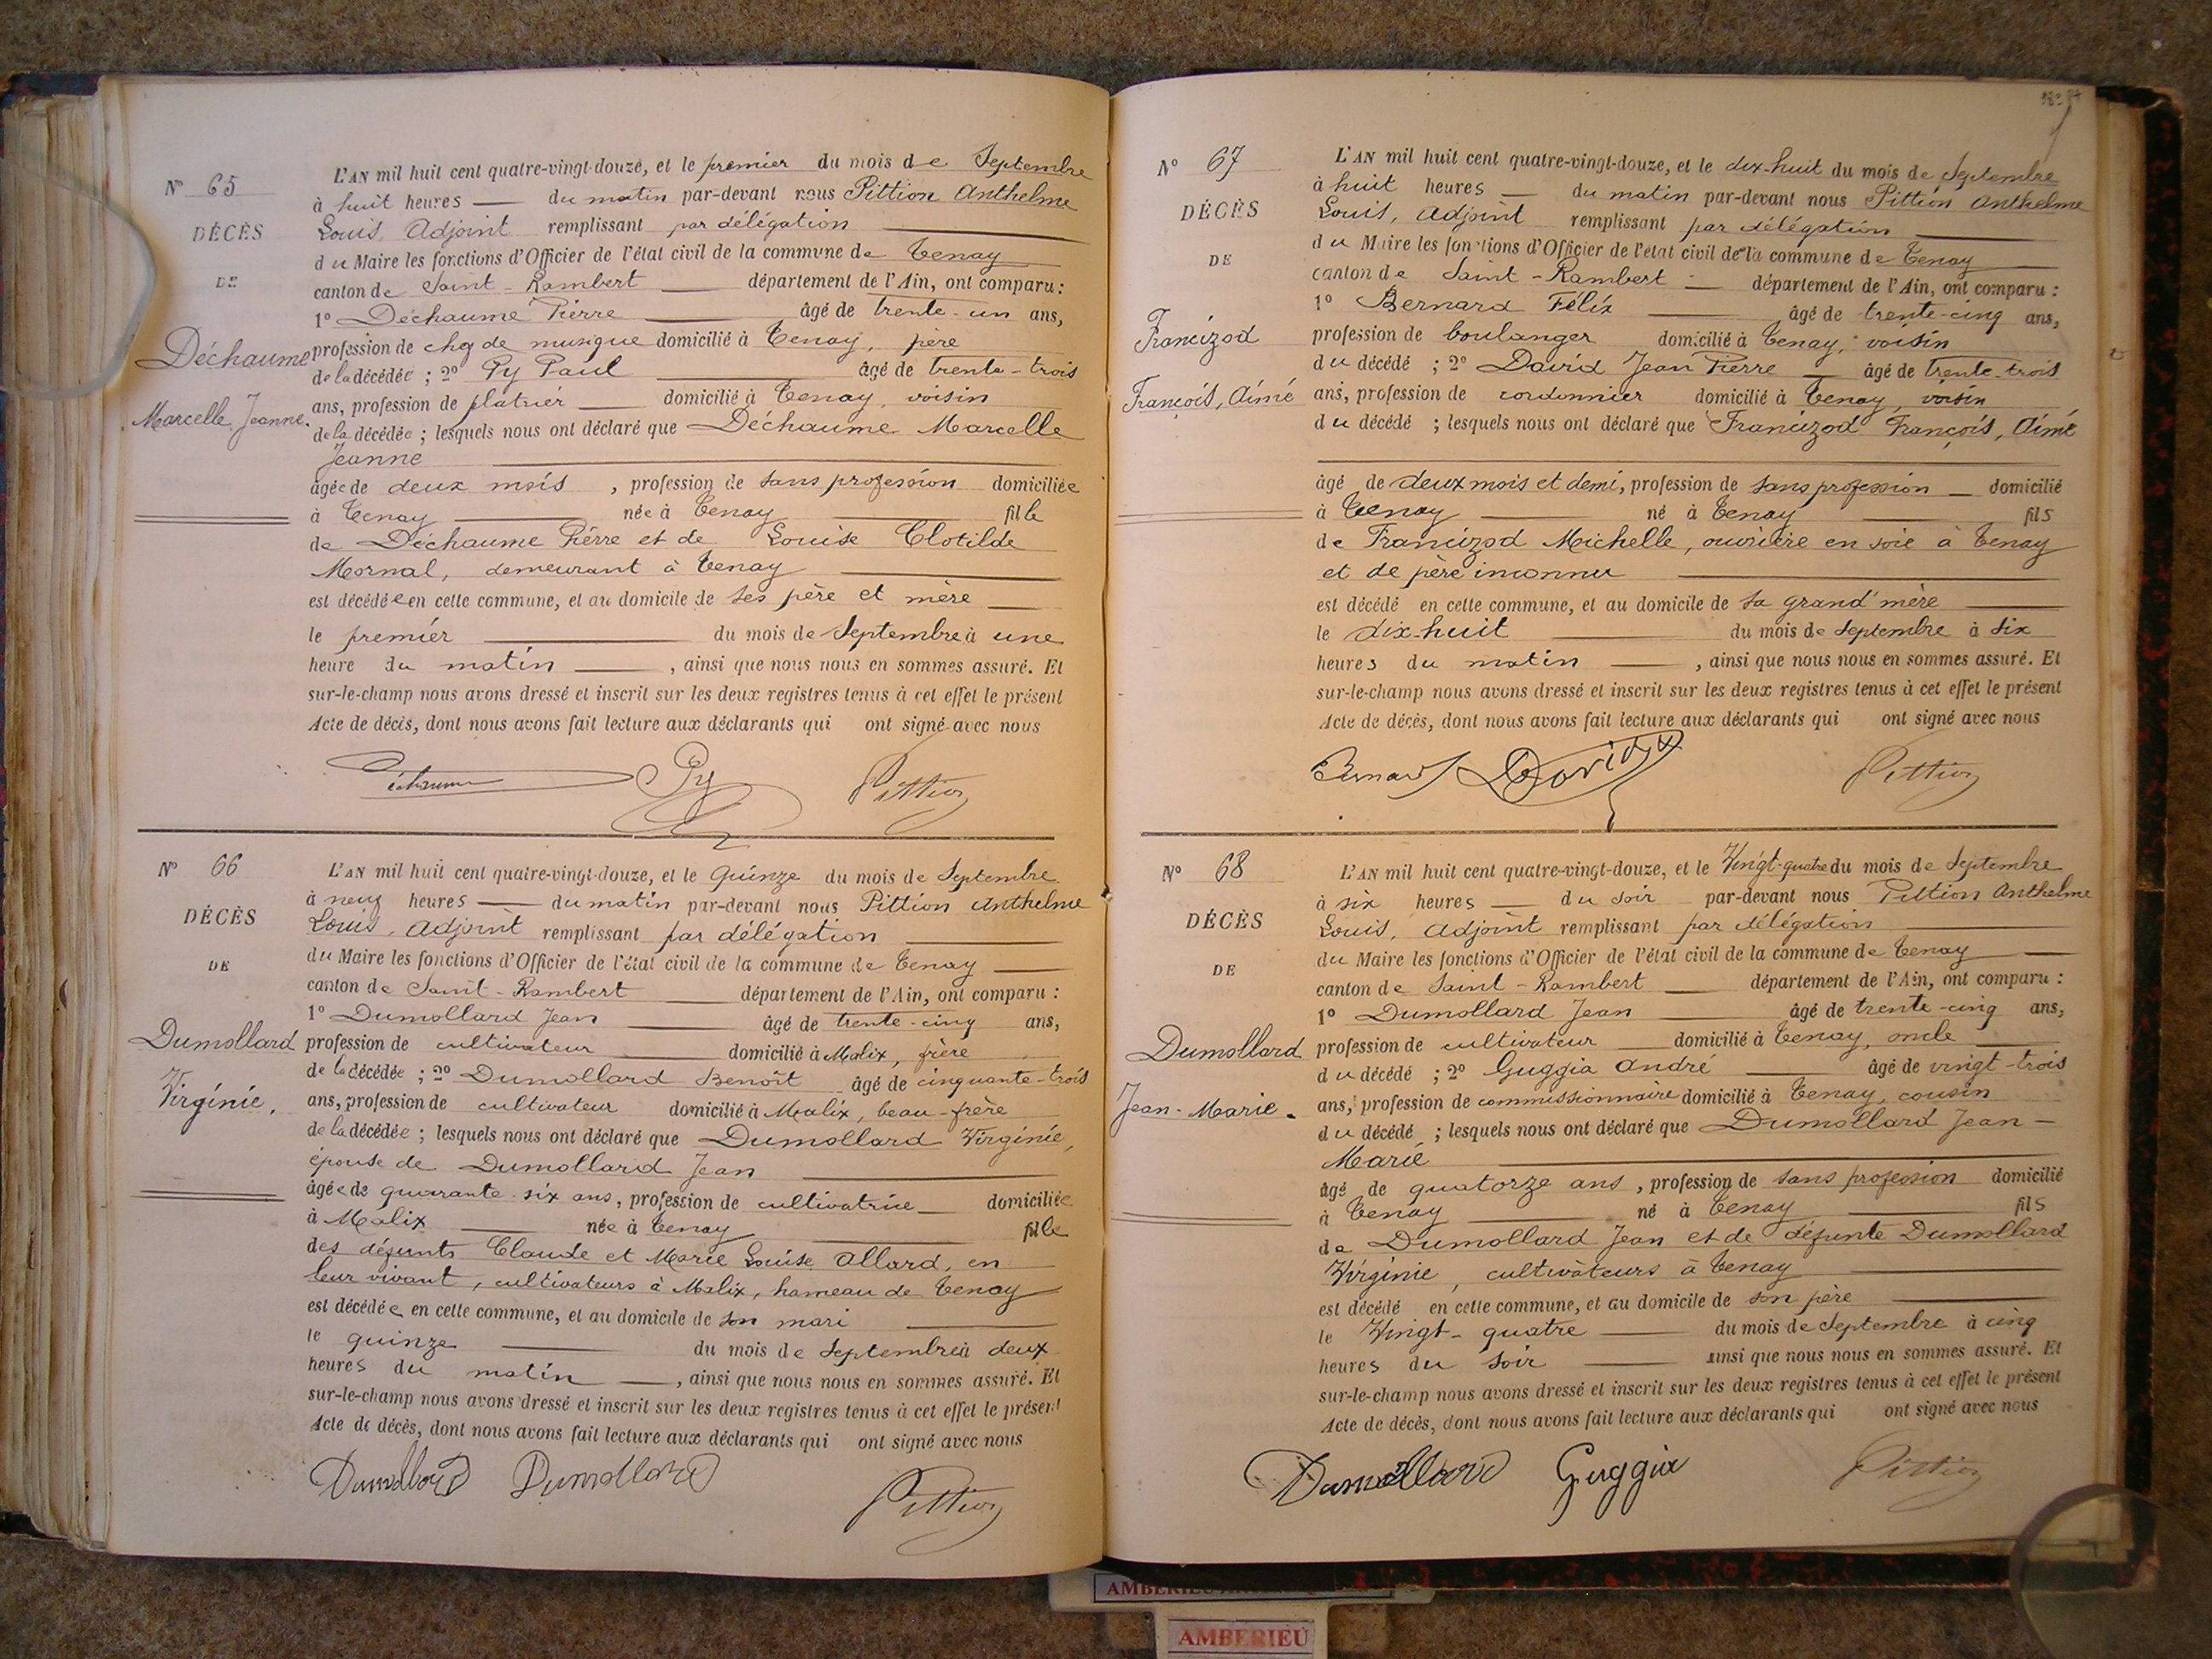 N° 65
DÉCÈS
DE
Déchaume
Marcelle Jeanne.
L'AN mil huit cent quatre-vingt-douze, et le premier du mois de Septembre
à huit heures — du matin par-devant nous Pittion Anthelme
Louis, Adjoint remplissant par délégation
du Maire les fonctions d'Officier de l'état civil de la commune de Tenay
canton de Saint-Rambert — département de l'Ain, ont comparu :
1° Déchaume Pierre — âgé de trente-un ans,
profession de chef de musique domicilié à Tenay, père
de la décédée ; 2° Py Paul — âgé de trente-trois
ans, profession de platrier — domicilié à Tenay, voisin
de la décédée ; lesquels nous ont déclaré que Déchaume Marcelle
Jeanne
âgée de deux mois, profession de sans profession domiciliée
à Tenay — née à Tenay — fille
de Déchaume Pierre et de Louise Clotilde
Mornal, demeurant à Tenay
est décédée en cette commune, et au domicile de ses père et mère
le premier — du mois de Septembre à une
heure du matin —, ainsi que nous nous en sommes assuré. Et
sur-le-champ nous avons dressé et inscrit sur les deux registres tenus à cet effet le présent
Acte de décès, dont nous avons fait lecture aux déclarants qui ont signé avec nous
Déchaume Py Pittion
N° 66
DÉCÈS
DE
Dumollard
Virginie.
L'AN mil huit cent quatre-vingt-douze, et le Quinze du mois de Septembre
à neuf heures — du matin par-devant nous Pittion Anthelme
Louis, Adjoint remplissant par délégation
du Maire les fonctions d'Officier de l'état civil de la commune de Tenay
canton de Saint-Rambert — département de l'Ain, ont comparu :
1° Dumollard Jean — âgé de trente-cinq ans,
profession de cultivateur — domicilié à Malix, frère
de la décédée ; 2° Dumollard Benoît âgé de cinquante-trois
ans, profession de cultivateur domicilié à Malix, beau-frère
de la décédée ; lesquels nous ont déclaré que Dumollard Virginie,
épouse de Dumollard Jean
âgée de quarante-six ans, profession de cultivatrice — domiciliée
à Malix — née à Tenay — fille
des défunts Claude et Marie Louise Allard, en
leur vivant, cultivateurs à Malix, hameau de Tenay
est décédée en cette commune, et au domicile de son mari
le quinze — du mois de Septembre à deux
heures du matin —, ainsi que nous nous en sommes assuré. Et
sur-le-champ nous avons dressé et inscrit sur les deux registres tenus à cet effet le présent
Acte de décès, dont nous avons fait lecture aux déclarants qui ont signé avec nous
Dumollard Dumollard
Pittion
N° 67
DÉCÈS
DE
Francizod
François, Aimé
L'AN mil huit cent quatre-vingt-douze, et le dix-huit du mois de Septembre
à huit heures — du matin par-devant nous Pittion Anthelme
Louis, Adjoint remplissant par délégation
du Maire les fonctions d'Officier de l'état civil de la commune de Tenay
canton de Saint-Rambert — département de l'Ain, ont comparu :
1° Bernard Félix — âgé de trente-cinq ans,
profession de boulanger domicilié à Tenay, voisin
du décédé ; 2° David Jean Pierre — âgé de trente-trois
ans, profession de cordonnier domicilié à Tenay, voisin
du décédé ; lesquels nous ont déclaré que Francizod François, Aimé
âgé de deux mois et demi, profession de sans profession — domicilié
à Tenay — né à Tenay — fils
de Francizod Michelle, ouvrière en soie à Tenay
et de père inconnu
est décédé en cette commune, et au domicile de sa grand'mère
le dix-huit — du mois de Septembre à six
heures du matin —, ainsi que nous nous en sommes assuré. Et
sur-le-champ nous avons dressé et inscrit sur les deux registres tenus à cet effet le présent
Acte de décès, dont nous avons fait lecture aux déclarants qui ont signé avec nous
Bernard David Pittion
N° 68
DÉCÈS
DE
Dumollard
Jean-Marie.
L'AN mil huit cent quatre-vingt-douze, et le Vingt-quatre du mois de Septembre
à six heures — du soir par-devant nous Pittion Anthelme
Louis, Adjoint remplissant par délégation
du Maire les fonctions d'Officier de l'état civil de la commune de Tenay
canton de Saint-Rambert — département de l'Ain, ont comparu :
1° Dumollard Jean — âgé de trente-cinq ans,
profession de cultivateur — domicilié à Tenay, oncle
du décédé ; 2° Guggia André — âgé de vingt-trois
ans, profession de commissionnaire domicilié à Tenay, cousin
du décédé ; lesquels nous ont déclaré que Dumollard Jean-
Marie
âgé de quatorze ans, profession de sans profession domicilié
à Tenay — né à Tenay — fils
de Dumollard Jean et de défunte Dumollard
Virginie, cultivateurs à Tenay
est décédé en cette commune, et au domicile de son père
le Vingt-quatre — du mois de Septembre à cinq
heures du soir — ainsi que nous nous en sommes assuré. Et
sur-le-champ nous avons dressé et inscrit sur les deux registres tenus à cet effet le présent
Acte de décès, dont nous avons fait lecture aux déclarants qui ont signé avec nous
Dumollard Guggia Pittion
AMBERIEU
AMBERIEU